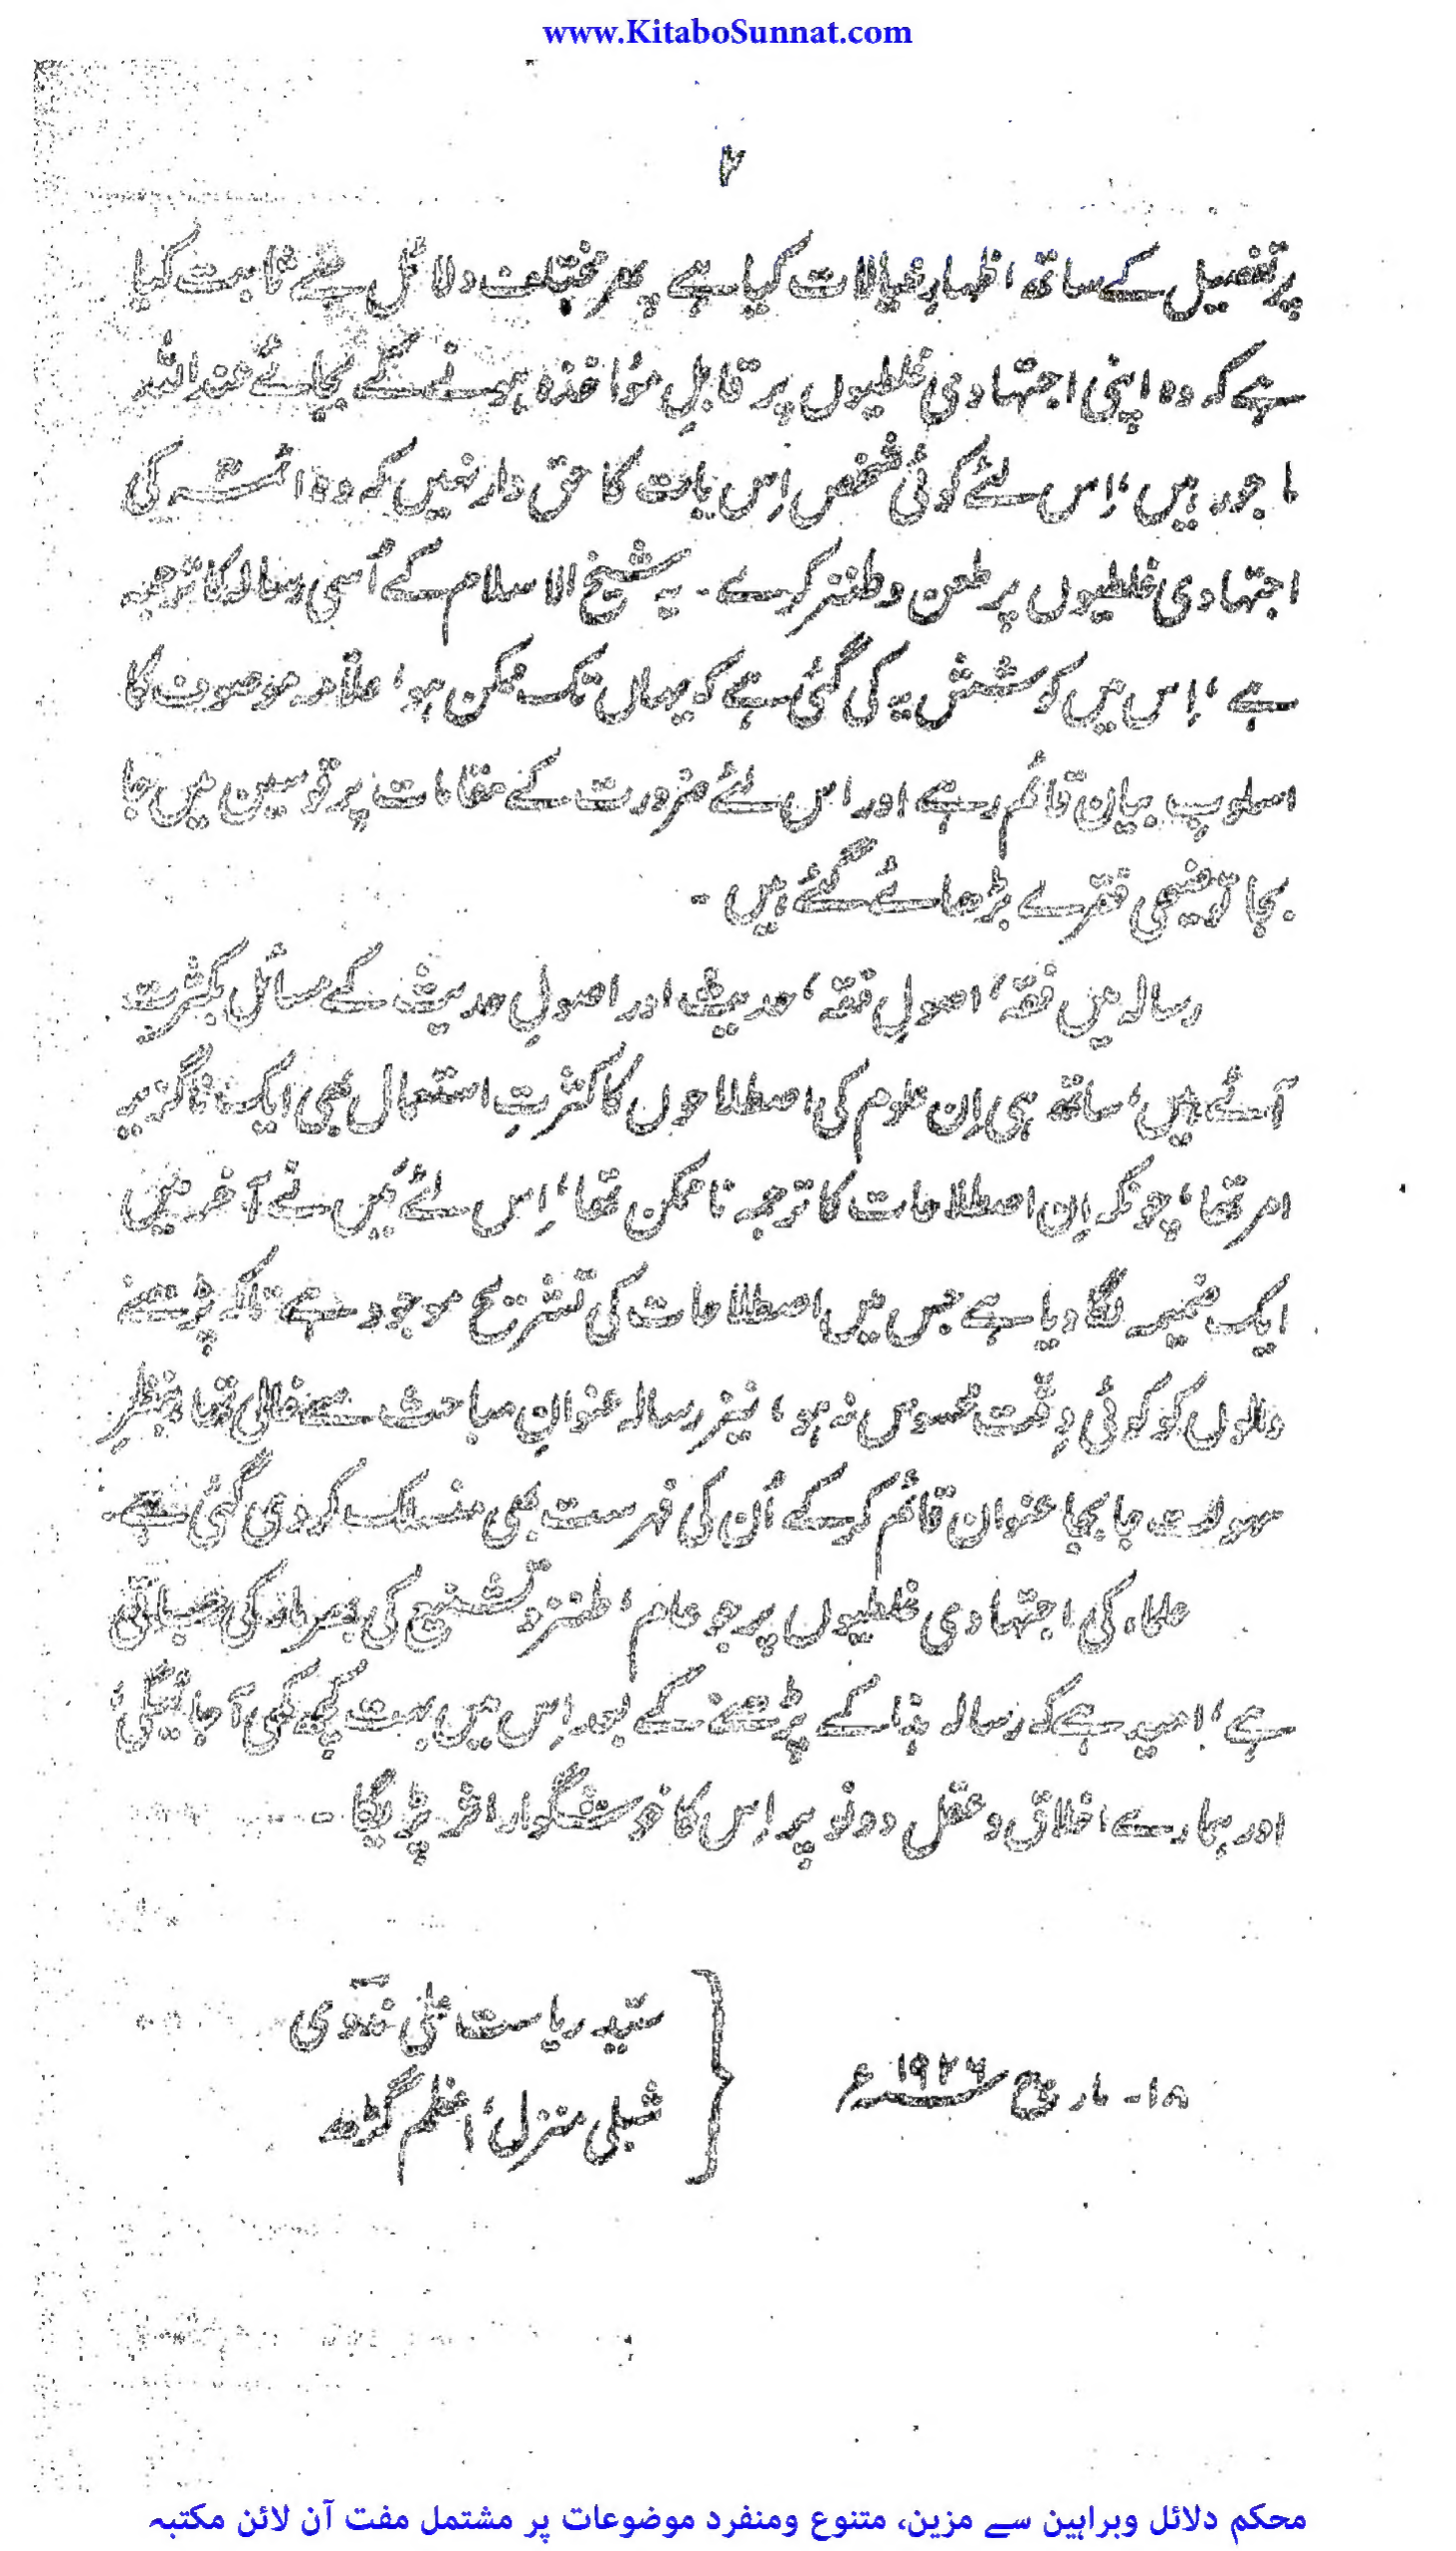 www.KitaboSunnat.com
۴
پر تفصیل کے ساتھ اظہارِ خیالات کیا ہے پھر مختلف دلائل سے ثابت کیا
ہے کہ وہ اپنی اجتہادی غلطیوں پر قابلِ مؤاخذہ ہونے کے بجائے عند اللہ
ماجور ہیں، اِس لئے کوئی شخص اِس بات کا حق دار نہیں کہ وہ ائمہ کی
اجتہادی غلطیوں پر طعن و طنز کرے۔ یہ شیخ الاسلام کے اُسی رسالہ کا ترجمہ
ہے، اِس میں کوشش یہ کی گئی ہے کہ جہاں تک ممکن ہو، علامہ موصوف کا
اسلوب بیان قائم رہے اور اس لئے ضرورت کے مقامات پر قوسین میں جا
بجا توضیحی فقرے بڑھائے گئے ہیں۔
رسالہ میں فقہ، اصولِ فقہ، حدیث اور اصولِ حدیث کے مسائل بکثرت
آئے ہیں، ساتھ ہی اِن علوم کی اصطلاحوں کا کثرتِ استعمال بھی ایک ناگزیر
امر تھا، چونکہ اِن اصطلاحات کا ترجمہ ناممکن تھا، اِس لئے میں نے آخر میں
ایک ضمیمہ لگا دیا ہے جس میں اصطلاحات کی تشریح موجود ہے تاکہ پڑھنے
والوں کو کوئی دِقّت محسوس نہ ہو، نیز رسالہ عنوانِ مباحث سے خالی تھا بنظرِ
سہولت جا بجا عنوان قائم کرکے اُن کی فہرست بھی منسلک کر دی گئی ہے۔
علماء کی اجتہادی غلطیوں پر جو عام، طنز و تشنیع کی بھرمار کی جاتی
ہے، امید ہے کہ رسالہ ہذا کے پڑھنے کے بعد اِس میں بہت کچھ کمی آجائیگی،
اور ہمارے اخلاق و عقل دونو پر اِس کا خوشگوار اثر پڑیگا۔
سیّد ریاست علی ندوی
۱۸۔ مارچ ۱۹۲۶ء
شبلی منزل، اعظم گڑھ
محکم دلائل وبراہین سے مزین، متنوع ومنفرد موضوعات پر مشتمل مفت آن لائن مکتبہ